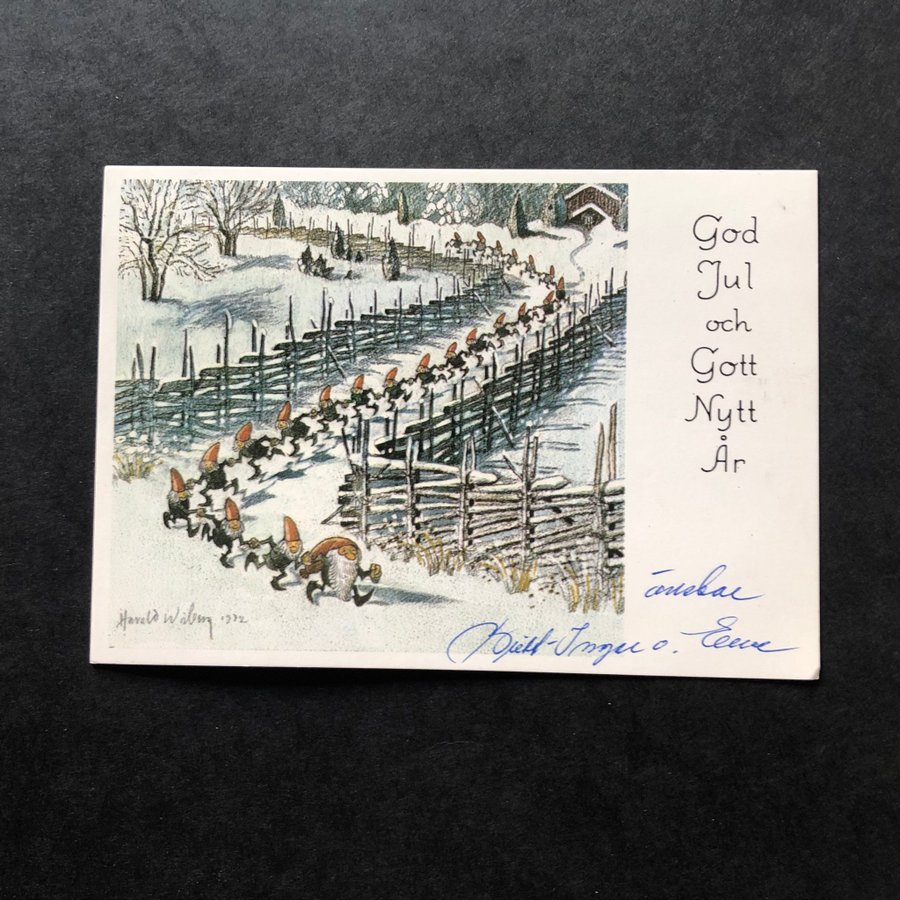 God
Jul
och
Gott
Nytt
År
Harald Wiberg 1972
önskar
Kjell-Inger o. Erna